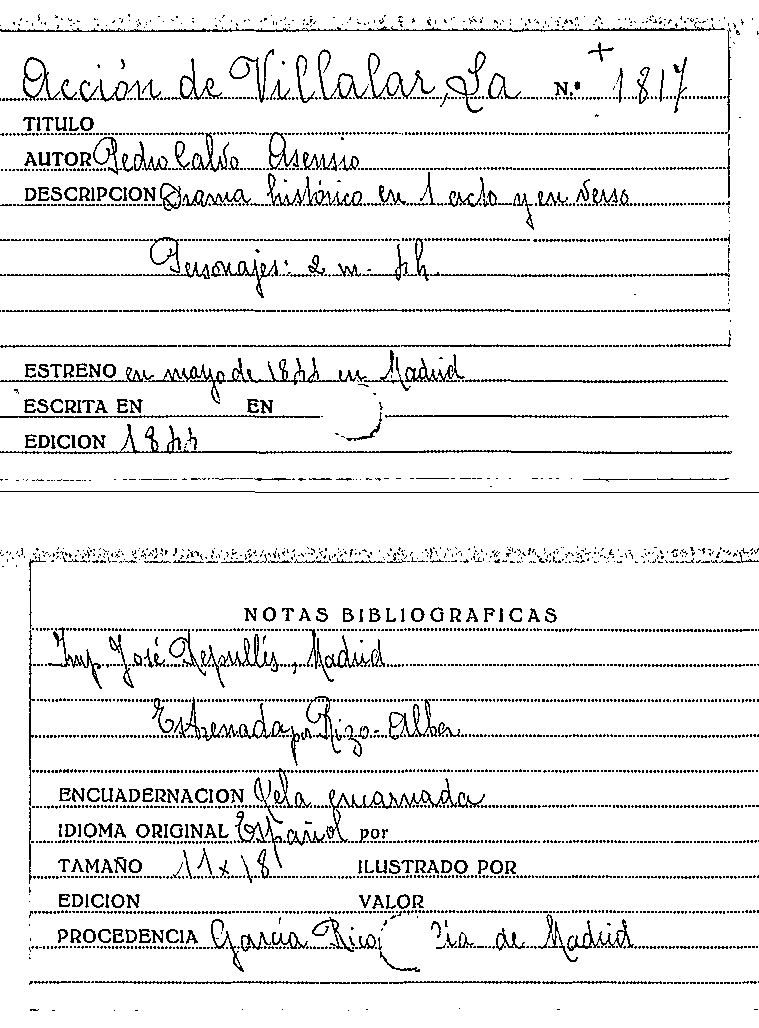 Acción de Villalar, La N.º + 1817
TITULO
AUTOR Pedro Calvo Asensio
DESCRIPCION Drama histórico en 1 acto y en verso
Personajes: 2 m. 4 h.
ESTRENO en mayo de 1844 en Madrid
ESCRITA EN EN
EDICION 1844
NOTAS BIBLIOGRAFICAS
Imp. José Repullés, Madrid
Estrenada por Rizo-Alber
ENCUADERNACION Tela encarnada
IDIOMA ORIGINAL Español por
TAMAÑO 11x18 ILUSTRADO POR
EDICION VALOR
PROCEDENCIA García Rico de Madrid